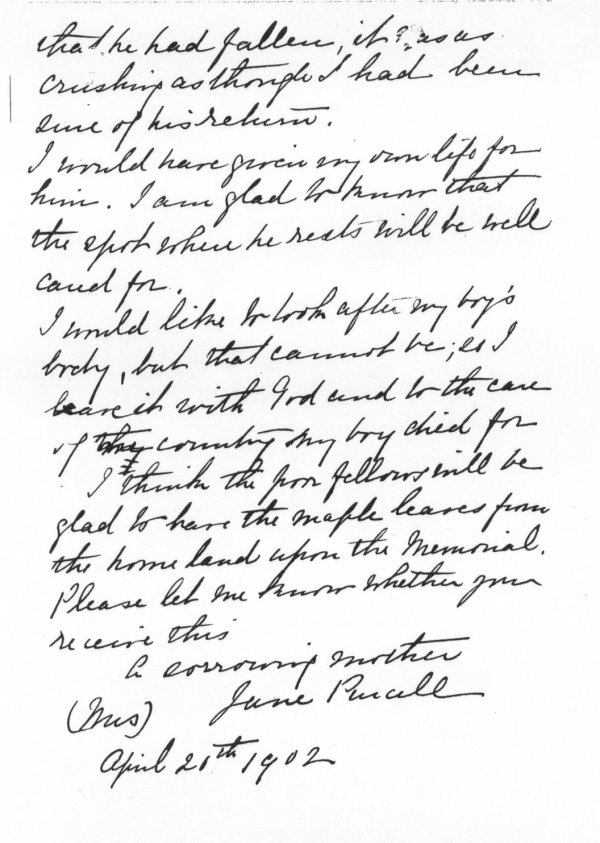 that he had fallen, it was as
crushing as though I had been
sure of his return.
I would have given my own life for
him. I am glad to know that
the spot where he rests will be well
cared for.
I would like to look after my boy's
body, but that cannot be; so I
leave it with God and to the care
of the country my boy died for
I think the poor fellows will be
glad to have the maple leaves from
the home land upon the Memorial.
Please let me know whether you
receive this
A sorrowing mother
(Mrs) Jane Purcell
April 20th 1902